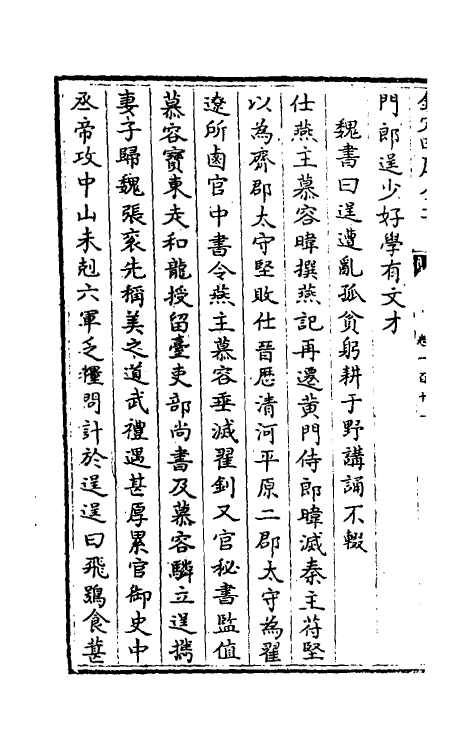 門郎逞少好學有文才
魏書曰逞遭亂孤貧躬耕于野講誦不輟
仕燕主慕容暐撰燕記再遷黃門侍郎暐滅秦主苻堅
以為齊郡太守堅敗仕晉歴清河平原二郡太守為翟
遼所鹵官中書令燕主慕容垂滅翟釗又官秘書監值
慕容寶東走和龍授留臺吏部尚書及慕容驎立逞攜
妻子歸魏張衮先稱美之道武禮遇甚厚累官御史中
丞帝攻中山未剋六軍乏糧問計於逞逞曰飛鴞食葚